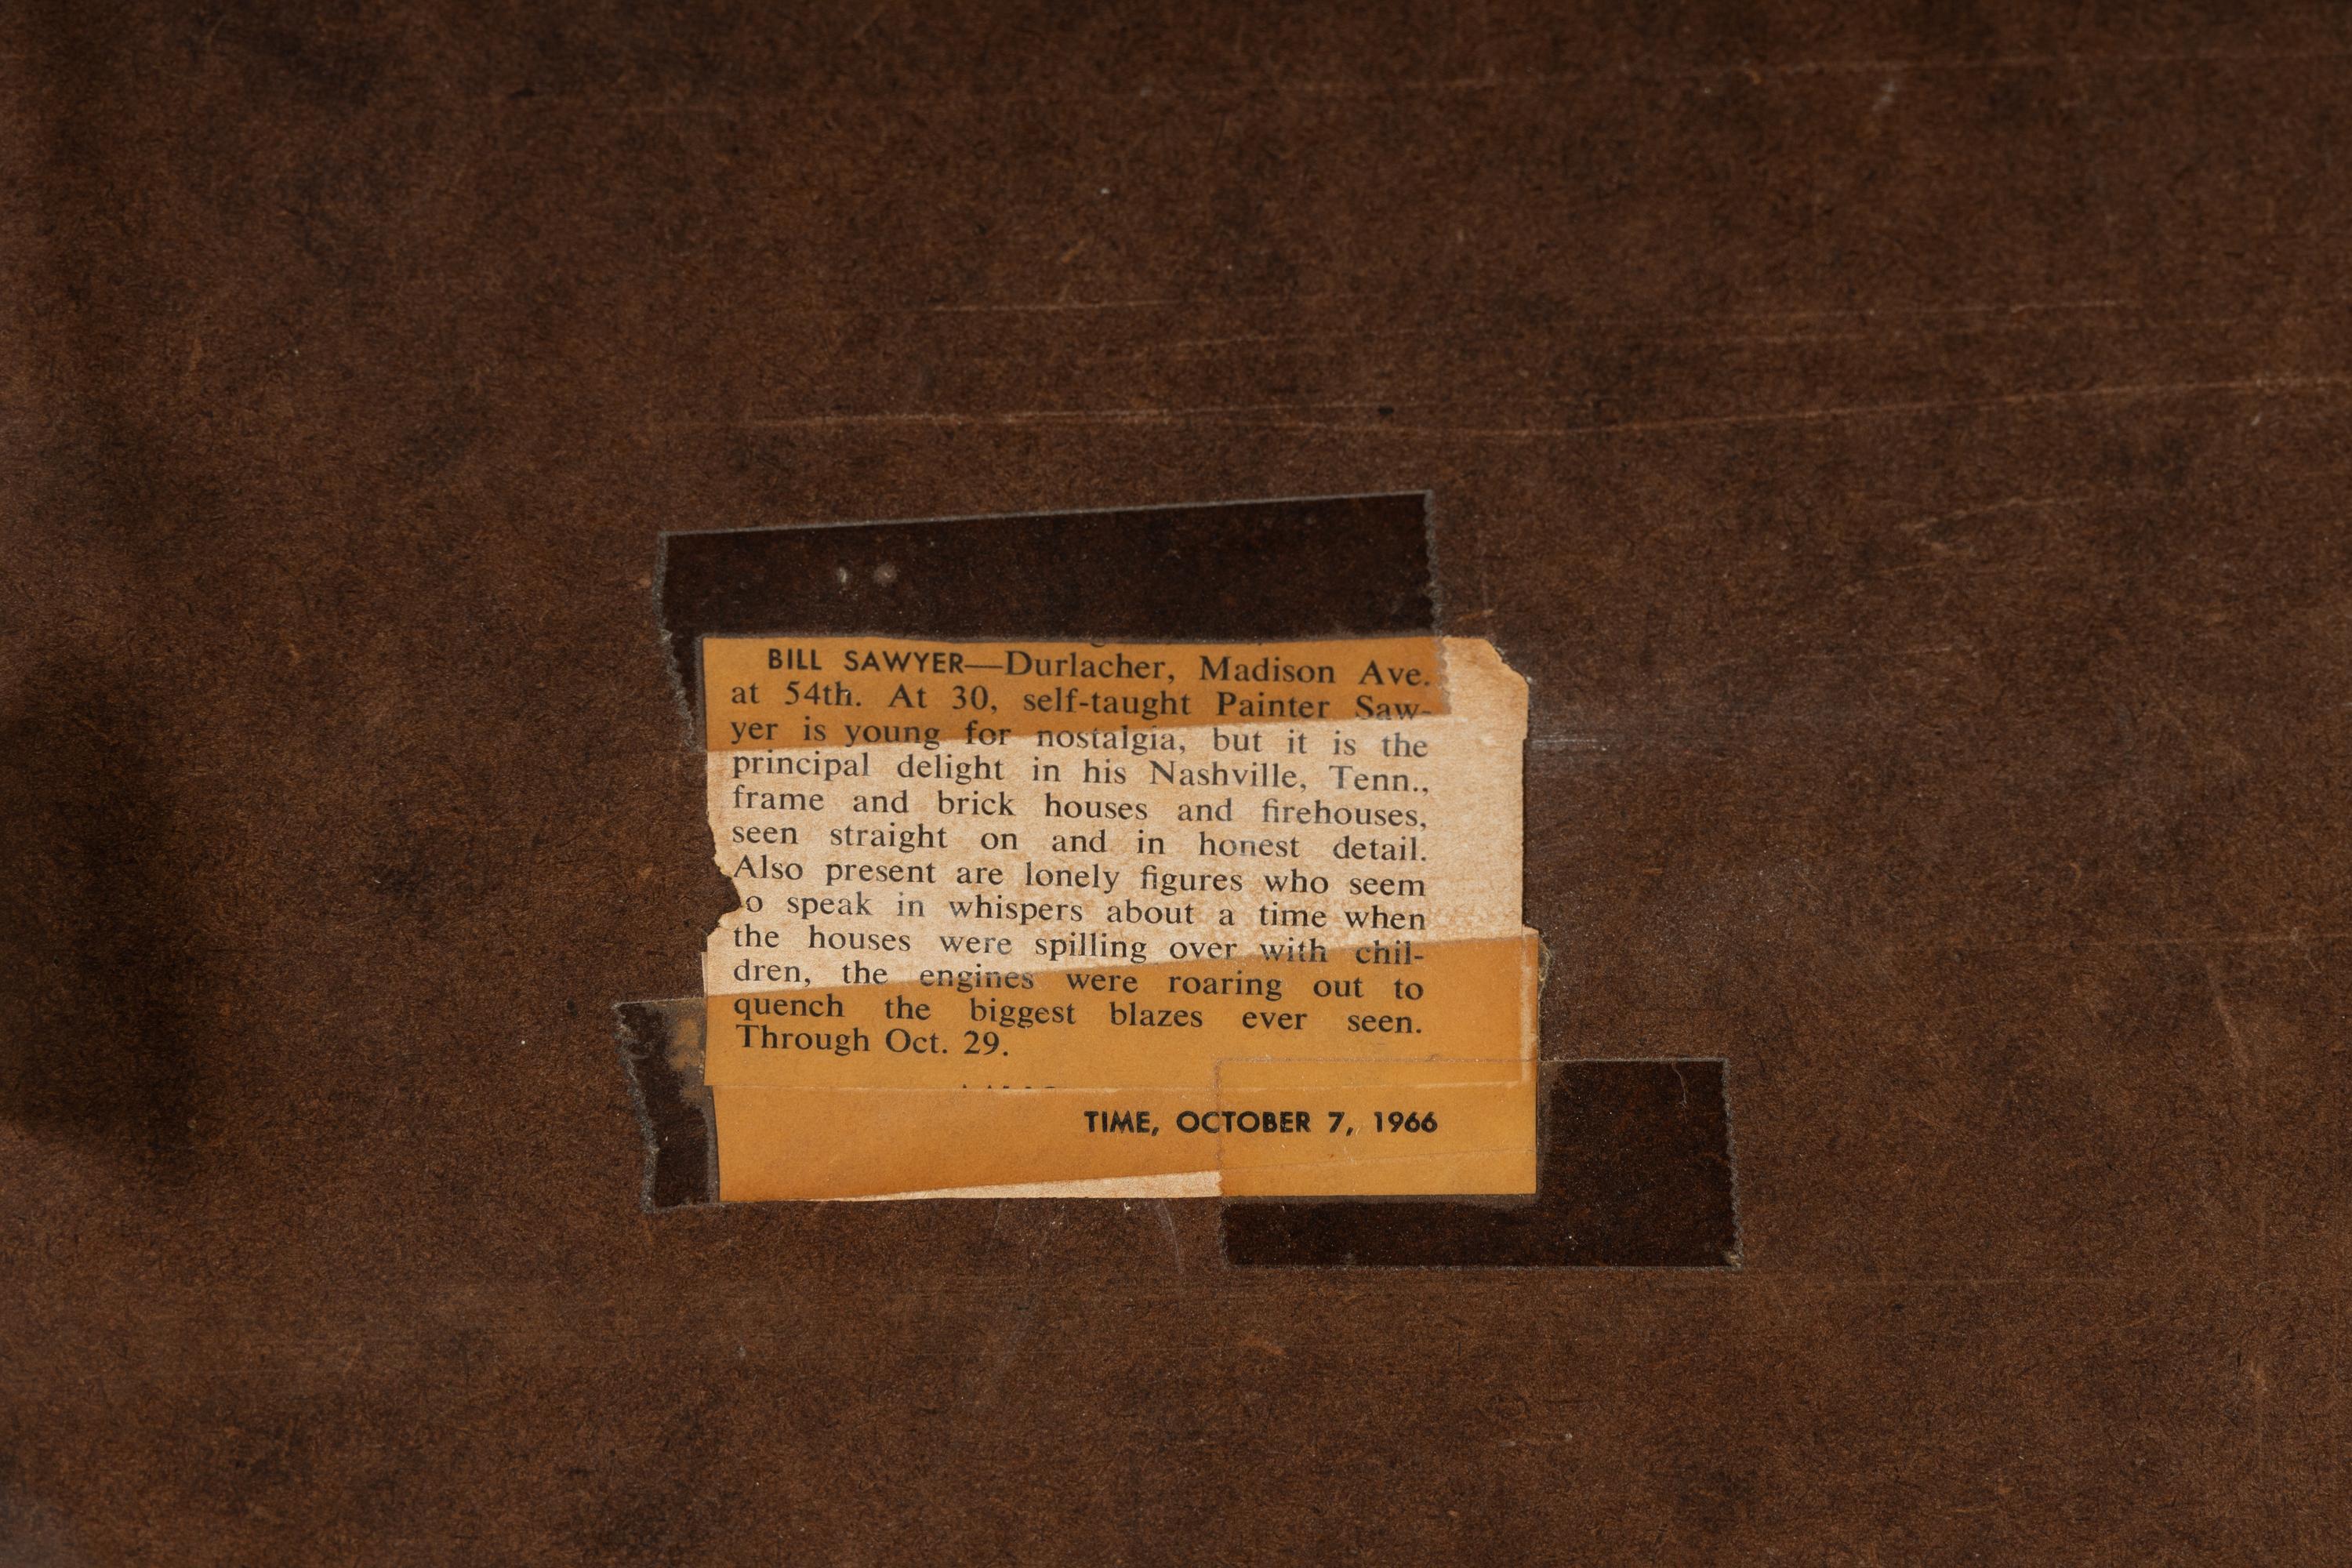 BILL SAWYER—Durlacher, Madison Ave.
at 54th. At 30, self-taught Painter Saw-
yer is young for nostalgia, but it is the
principal delight in his Nashville, Tenn.,
frame and brick houses and firehouses,
seen straight on and in honest detail.
Also present are lonely figures who seem
o speak in whispers about a time when
the houses were spilling over with chil-
dren, the engines were roaring out to
quench the biggest blazes ever seen.
Through Oct. 29.
TIME, OCTOBER 7, 1966